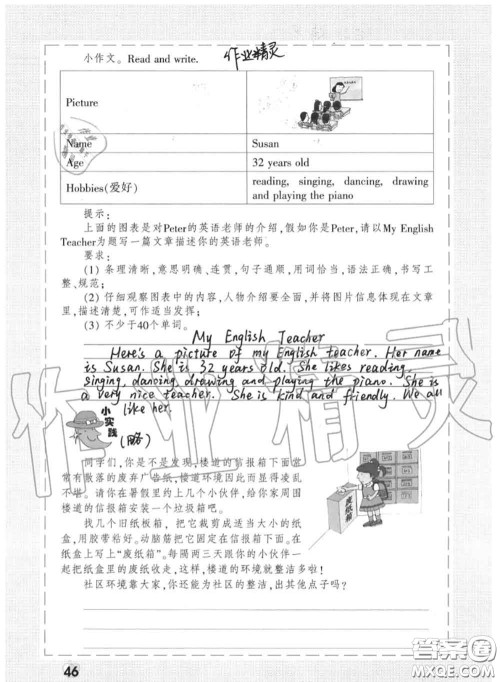 小作文。Read and write.
作业精灵
Picture
Name Susan
Age 32 years old
Hobbies(爱好) reading, singing, dancing, drawing
and playing the piano
提示:
上面的图表是对Peter的英语老师的介绍,假如你是Peter,请以My English
Teacher为题写一篇文章描述你的英语老师。
要求:
(1) 条理清晰,意思明确、连贯,句子通顺,用词恰当,语法正确,书写工
整、规范;
(2) 仔细观察图表中的内容,人物介绍要全面,并将图片信息体现在文章
里,描述清楚,可作适当发挥;
(3) 不少于40个单词。
My English Teacher
Here's a picture of my English teacher. Her name
is Susan. She is 32 years old. She likes reading,
singing, dancing, drawing and playing the piano. She is
a very nice teacher. She is kind and friendly. We all
like her.
小实践
(略)
同学们,你是不是发现,楼道的信报箱下面常
常有散落的废弃广告纸,楼道环境因此而显得凌乱
不堪。请你在暑假里约上几个小伙伴,给你家周围
楼道的信报箱安装一个垃圾箱吧。
找几个旧纸板箱,把它裁剪成适当大小的纸
盒,用胶带粘好。动脑筋把它固定在信报箱下面。在
纸盒上写上“废纸箱”。每隔两三天跟你的小伙伴一
起把纸盒里的废纸收走,这样,楼道的环境就整洁多啦!
社区环境靠大家,你还能为社区的整洁,出其他点子吗?
废纸箱
46
作业精灵
答案圈
MXQE.COM